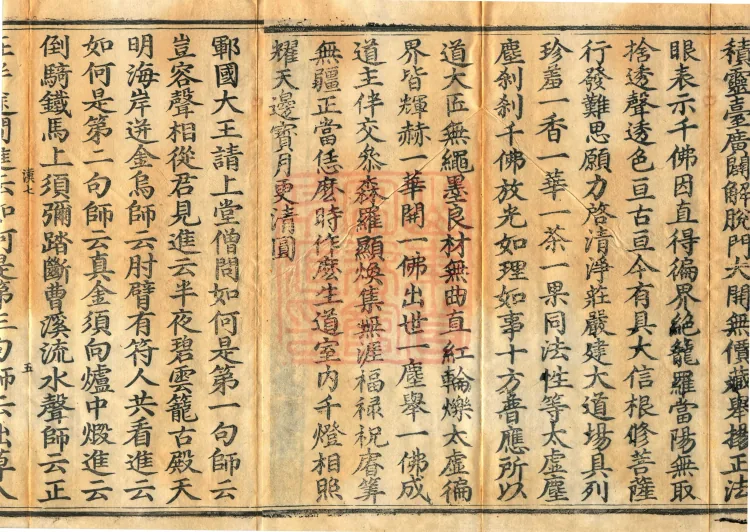 積靈臺廣闢解脫門大開無價藏舉揚正法
眼表示千佛因直得徧界絕籠羅當陽無取
捨透聲透色亘古亘今有具大信根修菩薩
行發難思願力啓清淨莊嚴建大道場具列
珍羞一香一華一茶一果同法性等太虛塵
塵刹刹千佛放光如理如事十方普應所以
道大匠無繩墨良材無曲直紅輪爍太虛徧
界皆輝赫一華開一佛出世一塵舉一佛成
道主伴交參森羅顯煥集無涯福祿祝睿筭
無疆正當恁麽時作麽生道室內千燈相照
耀天邊寶月更清圓
鄆國大王請上堂僧問如何是第一句師云
豈容聲相從君見進云半夜碧雲籠古殿天
明海岸迸金烏師云肘臂有符人共看進云
如何是第二句師云真金須向爐中煅進云
倒騎鐵馬上須彌踏斷曹溪流水聲師云正
漢七 五
在半途間進云如何是第三句師云出草入